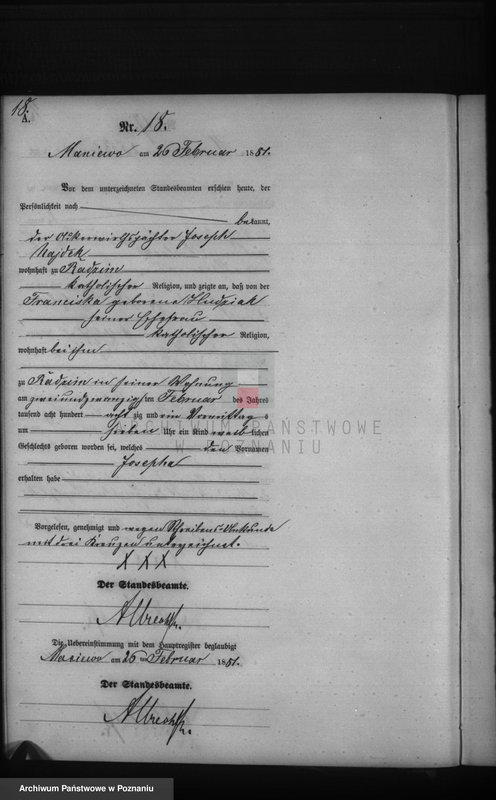 18.
A.
Nr. 18.
Maniewo am 26 Februar 1881.
Vor dem unterzeichneten Standesbeamten erschien heute, der
Persönlichkeit nach
bekannt,
der Ackerwirthspächter Joseph
Najdek
wohnhaft zu Radzim
katholischer Religion, und zeigte an, daß von der
Franciska geborene
seiner Ehefrau
katholischer Religion,
wohnhaft bei ihm
zu Radzim in seiner Wohnung
am zwei und zwanzigsten Februar des Jahres
tausend acht hundert acht zig und ein Vormittag s
um sieben Uhr ein Kind weib lichen
Geschlechts geboren worden sei, welches den Vornamen
Josepha
erhalten habe
Vorgelesen, genehmigt und wegen Schreibens-Unkunde
mit drei Kreuzen unterzeichnet.
X X X
Der Standesbeamte.
Albrecht
Die Uebereinstimmung mit dem Hauptregister beglaubigt
Maniewo am 26 ten Februar 1881.
Der Standesbeamte.
Albrecht
ARCHIWUM PAŃSTWOWE
W POZNANIU
Archiwum Państwowe w Poznaniu